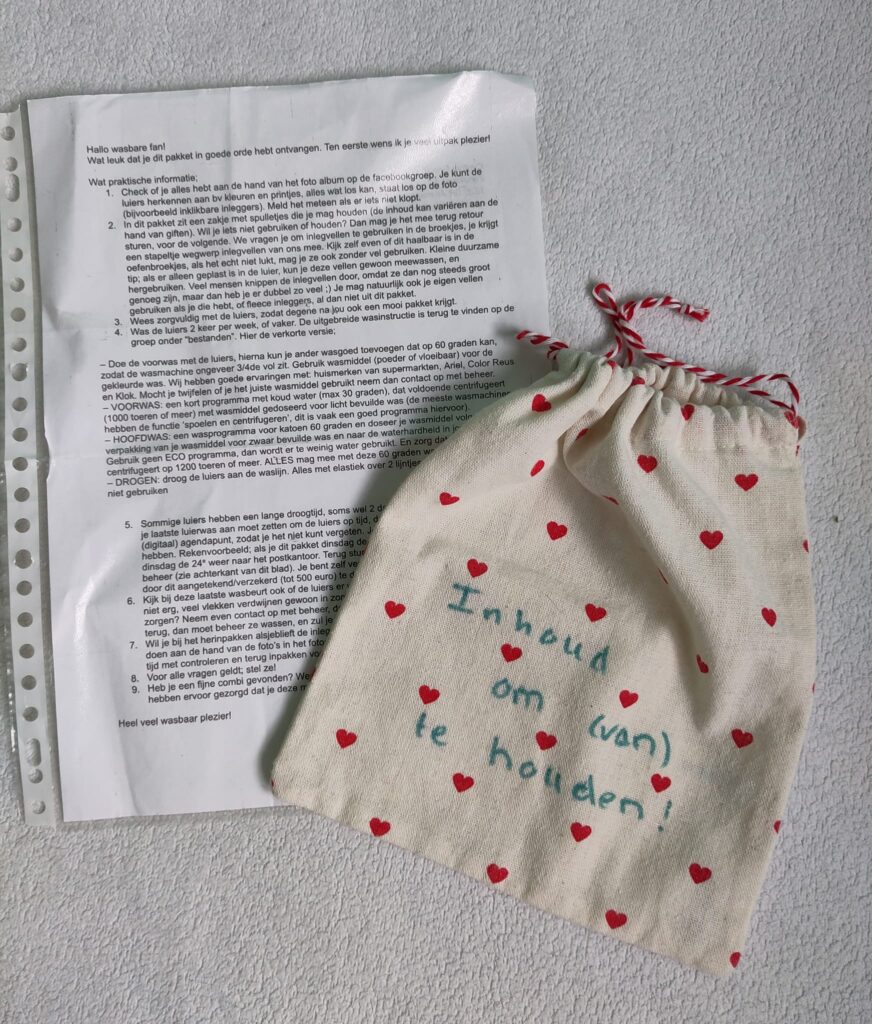 Hallo wasbare fan!
Wat leuk dat je dit pakket in goede orde hebt ontvangen. Ten eerste wens ik je veel uitpak plezier!
Wat praktische informatie;
1. Check of je alles hebt aan de hand van het foto album op de facebookgroep. Je kunt de
luiers herkennen aan bv kleuren en printjes, alles wat los kan, staat los op de foto
(bijvoorbeeld inklikbare inleggers). Meld het meteen als er iets niet klopt.
2. In dit pakket zit een zakje met spulletjes die je mag houden (de inhoud kan variëren aan de
hand van giften). Wil je iets niet gebruiken of houden? Dan mag je het mee terug retour
sturen, voor de volgende. We vragen je om inlegvellen te gebruiken in de broekjes, je krijgt
een stapeltje wegwerp inlegvellen van ons mee. Kijk zelf even of dit haalbaar is in de
oefenbroekjes, als het echt niet lukt, mag je ze ook zonder vel gebruiken. Kleine duurzame
tip; als er alleen geplast is in de luier, kun je deze vellen gewoon meewassen, en
hergebruiken. Veel mensen knippen de inlegvellen door, omdat ze dan nog steeds groot
genoeg zijn, maar dan heb je er dubbel zo veel ;) Je mag natuurlijk ook je eigen vellen
gebruiken als je die hebt, of fleece inleggers, al dan niet uit dit pakket.
3. Wees zorgvuldig met de luiers, zodat degene na jou ook een mooi pakket krijgt.
4. Was de luiers 2 keer per week, of vaker. De uitgebreide wasinstructie is terug te vinden op de
groep onder "bestanden". Hier de verkorte versie;
– Doe de voorwas met de luiers, hierna kun je ander wasgoed toevoegen dat op 60 graden kan,
zodat de wasmachine ongeveer 3/4de vol zit. Gebruik wasmiddel (poeder of vloeibaar) voor de
gekleurde was. Wij hebben goede ervaringen met: huismerken van supermarkten, Ariel, Color Reus
en Klok. Mocht je twijfelen of je het juiste wasmiddel gebruikt neem dan contact op met beheer.
– VOORWAS: een kort programma met koud water (max 30 graden), dat voldoende centrifugeert
(1000 toeren of meer) met wasmiddel gedoseerd voor licht bevuilde was (de meeste wasmachines
hebben de functie 'spoelen en centrifugeren', dit is vaak een goed programma hiervoor).
– HOOFDWAS: een wasprogramma voor katoen 60 graden en doseer je wasmiddel
verpakking van je wasmiddel voor zwaar bevuilde was en naar de waterhardheid in
Gebruik geen ECO programma, dan wordt er te weinig water gebruikt. En zorg
centrifugeert op 1200 toeren of meer. ALLES mag mee met deze 60 graden
– DROGEN: droog de luiers aan de waslijn. Alles met elastiek over 2 lijntjes
niet gebruiken
5. Sommige luiers hebben een lange droogtijd, soms wel 2
je laatste luierwas aan moet zetten om de luiers op tijd,
(digitaal) agendapunt, zodat je het niet kunt vergeten.
hebben. Rekenvoorbeeld; als je dit pakket dinsdag de
dinsdag de 24e weer naar het postkantoor. Terug
beheer (zie achterkant van dit blad). Je bent zelf
door dit aangetekend/verzekerd (tot 500 euro) te
6. Kijk bij deze laatste wasbeurt ook of de luiers er
niet erg, veel vlekken verdwijnen gewoon in
zorgen? Neem even contact op met beheer,
terug, dan moet beheer ze wassen, en zul je
7. Wil je bij het herinpakken alsjeblieft de
doen aan de hand van de foto's in het
tijd met controleren en terug inpakken
8. Voor alle vragen geldt; stel ze!
9. Heb je een fijne combi gevonden?
hebben ervoor gezorgd dat je deze
Heel veel wasbaar plezier!
Inhoud
om (van)
te houden!